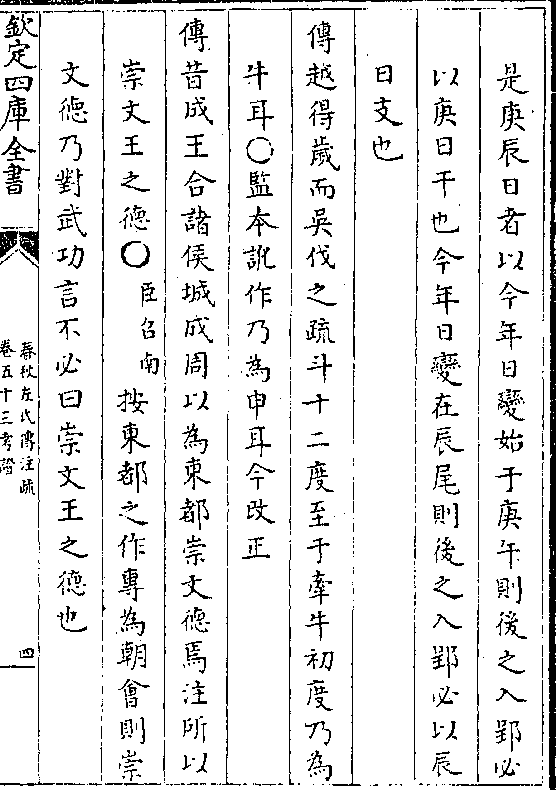 是庚辰日者以今年日變始于庚午則後之入郢必
以庚日干也今年日變在辰尾則後之入郢必以辰
日支也
傳越得歲而吳伐之疏斗十二度至于牽牛初度乃為
牛耳○監本訛作乃為申耳今改正
傳昔成王合諸侯城成周以為東都崇文德焉注所以
崇文王之德○臣召南按東都之作專為朝會則崇
文德乃對武功言不必曰崇文王之德也
欽定四庫全書
春秋左氏傳注疏
卷五十三考證
四